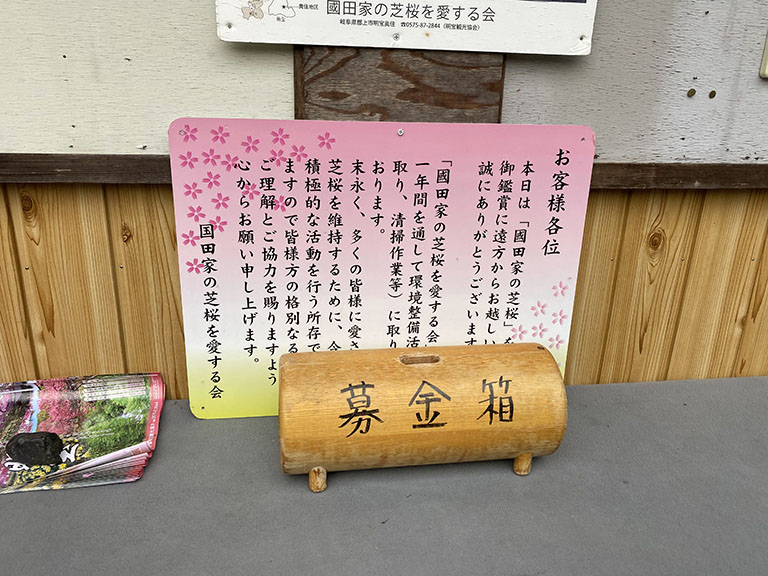 奥住地区
國田家の芝桜を愛する会
岐阜県郡上市明宝奥住 ☎0575-87-2844（明宝観光協会）
お客様各位
本日は「國田家の芝桜」を
御鑑賞に遠方からお越しい
誠にありがとうございます
「國田家の芝桜を愛する会
一年間を通して環境整備活
取り、清掃作業等）に取り
おります。
末永く、多くの皆様に愛さ
芝桜を維持するために、今
積極的な活動を行う所存で
ますので皆様方の格別なる
ご理解とご協力を賜りますよう
心からお願い申し上げます。
国田家の芝桜を愛する会
募金箱